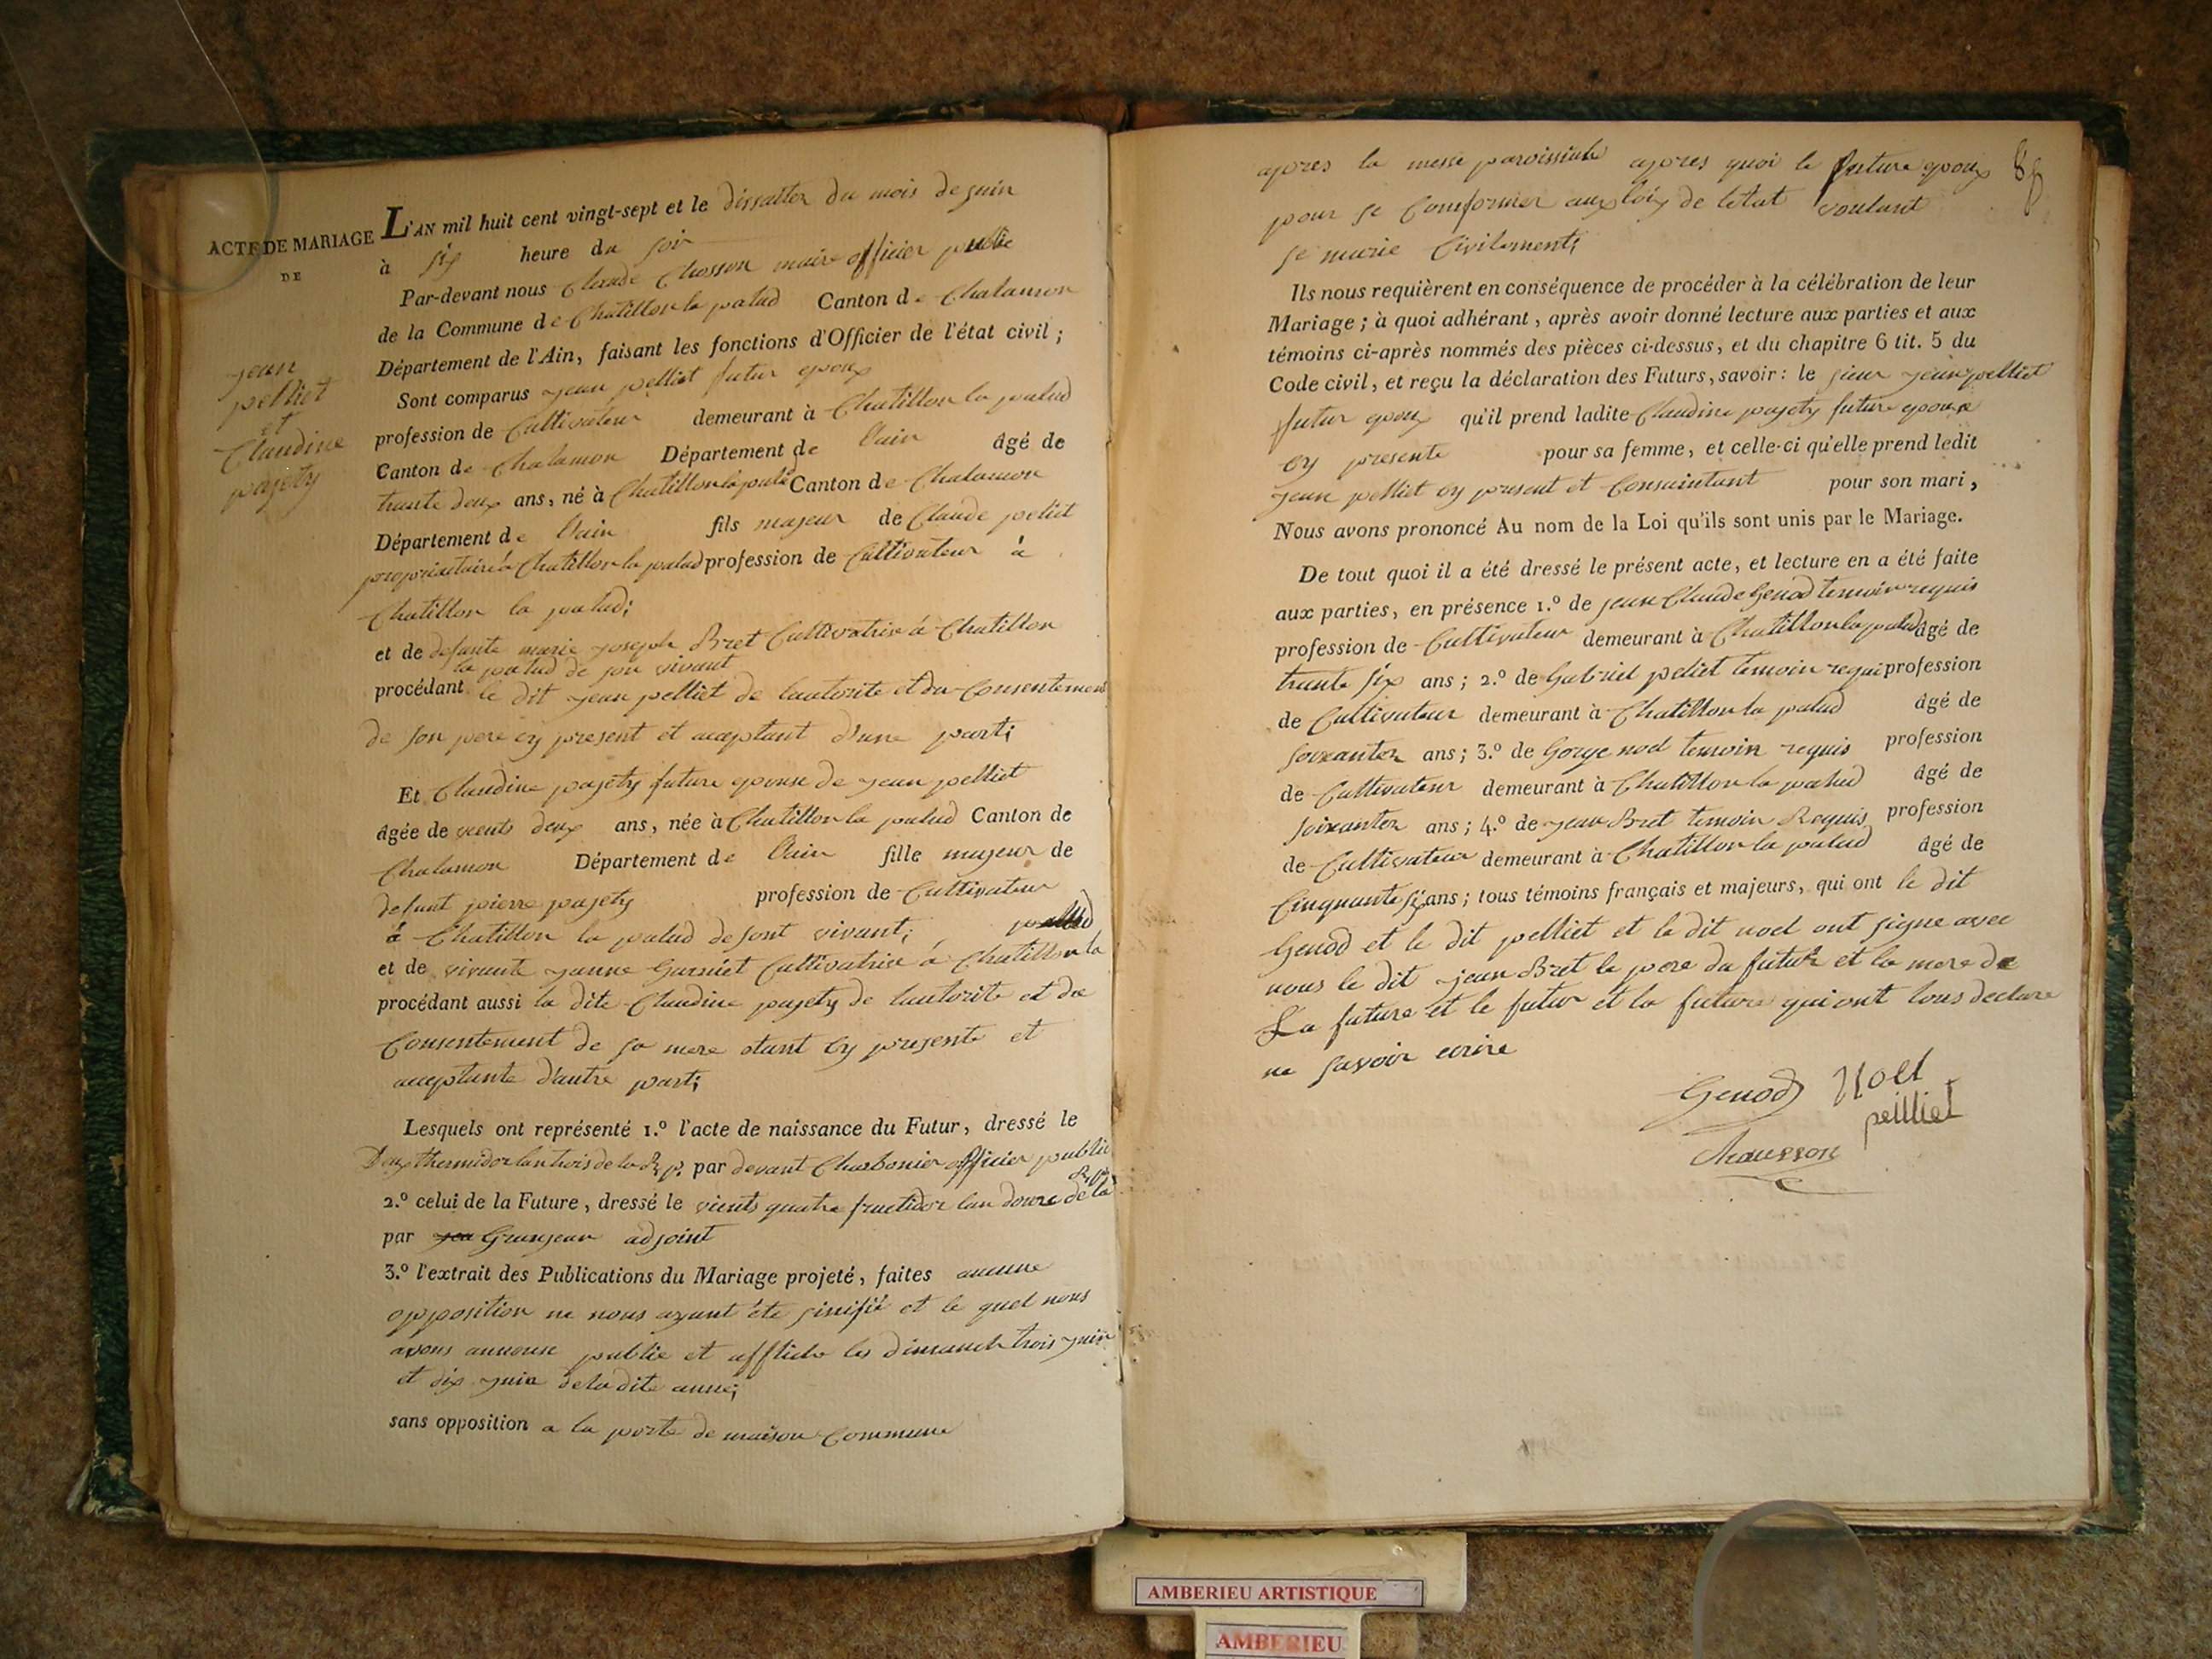 ACTE DE MARIAGE
DE
jean
pelliet
et
Claudine
pajety
L'AN mil huit cent vingt-sept et le dissatter du mois de juin
à six heure du soir
Par-devant nous Claude Chosson maire officier public
de la Commune de Chatillon la palud Canton de Chalamon
Département de l'Ain, faisant les fonctions d'Officier de l'état civil ;
Sont comparus jean pelliet futur epoux
profession de Cultivateur demeurant à Chatillon la palud
Canton de Chalamon Département de l'ain âgé de
trante deux ans, né à Chatillon la palud Canton de Chalamon
Département de l'ain fils majeur de Claude peliet
propriaitaire à Chatillon la palud profession de Cultivateur à
Chatillon la palud;
et de defunte marie joseph Bret Cultivatrise á Chatillon
la palud de son vivant
procédant le dit jean pelliet de lautorite et du Consentement
de son pere cy present et acceptant d'une part;
Et Claudine pajety future epouse de jean pelliet
âgée de veents deux ans, née à Chatillon la palud Canton de
Chalamon Département de l'ain fille majeur de
defunt pierre pajety profession de Cultivateur
á Chatillon la palud de sont vivant;
palud
et de vivante janne Garniet Cultivatrise á Chatillon la
procédant aussi la dite Claudine pajety de lautorite et du
Consentement de sa mere etant cy presente et
acceptante d'autre part;
Lesquels ont représenté 1.º l'acte de naissance du Futur, dressé le
Deux thermidor lan trois de la R p. par devant Charbonier officier public
2.º celui de la Future, dressé le vients quatre fructidor lan douze de la
par Granjean adjoint
3.º l'extrait des Publications du Mariage projeté, faites aucune
opposition ne nous ayant été sinifié et le quel nous
avons annonse publie et affliche les dimanche trois juin
et dix juin de la dite anne;
sans opposition a la porte de maison Commune
apres la messe paroissiale apres quoi le future epoux
pour se Conformer aux loix de l'etat voulant
se marie Civilement;
Ils nous requièrent en conséquence de procéder à la célébration de leur
Mariage ; à quoi adhérant, après avoir donné lecture aux parties et aux
témoins ci-après nommés des pièces ci-dessus, et du chapitre 6 tit. 5 du
Code civil, et reçu la déclaration des Futurs, savoir : le sieur jean pelliet
futur epoux qu'il prend ladite Claudine pajety future epouse
cy presente pour sa femme, et celle-ci qu'elle prend ledit
jean pelliet cy present et Consaintant pour son mari,
Nous avons prononcé Au nom de la Loi qu'ils sont unis par le Mariage.
De tout quoi il a été dressé le présent acte, et lecture en a été faite
aux parties, en présence 1.º de jean Claude Genod temoin requis
profession de Cultivateur demeurant à Chatillon la palud âgé de
trante six ans ; 2.º de Gabriel peliet temoin requi profession
de Cultivateur demeurant à Chatillon la palud âgé de
soixanten ans ; 3.º de Gorge noel temoin requis profession
de Cultivateur demeurant à Chatillon la palud âgé de
soixanten ans ; 4.º de jean Bret temoin Requis profession
de Cultivateur demeurant à Chatillon la palud âgé de
Cinquante six ans ; tous témoins français et majeurs, qui ont le dit
Genod et le dit pelliet et le dit noel ont signe avec
nous le dit jean Bret le pere du futur et la mere de
La future et le futur et la future qui ont tous declare
ne savoir ecrire
Genod Noel
peilliet
Chausson
AMBERIEU ARTISTIQUE
AMBERIEU